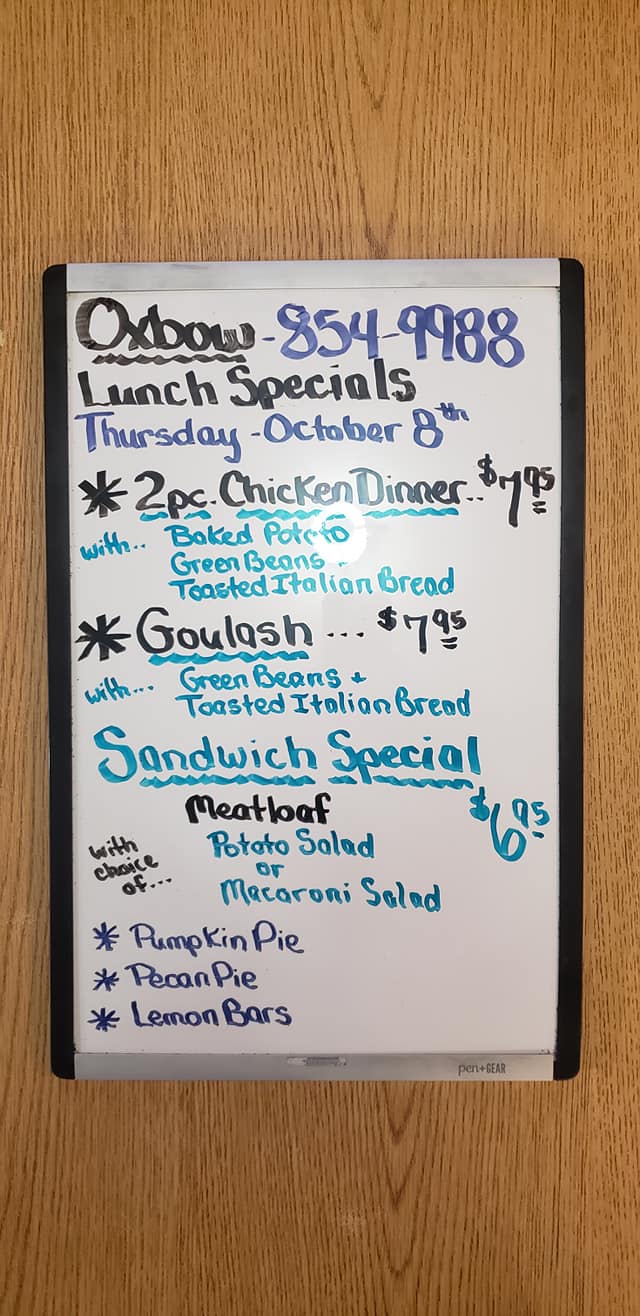 Oxbow - 854-9988
Lunch Specials
Thursday - October 8th
* 2pc. Chicken Dinner.. $7.95
with.. Baked Potato
Green Beans +
Toasted Italian Bread
* Goulash ... $7.95
with... Green Beans +
Toasted Italian Bread
Sandwich Special
Meatloaf $6.95
with choice of... Potato Salad
or
Macaroni Salad
* Pumpkin Pie
* Pecan Pie
* Lemon Bars
pen+GEAR